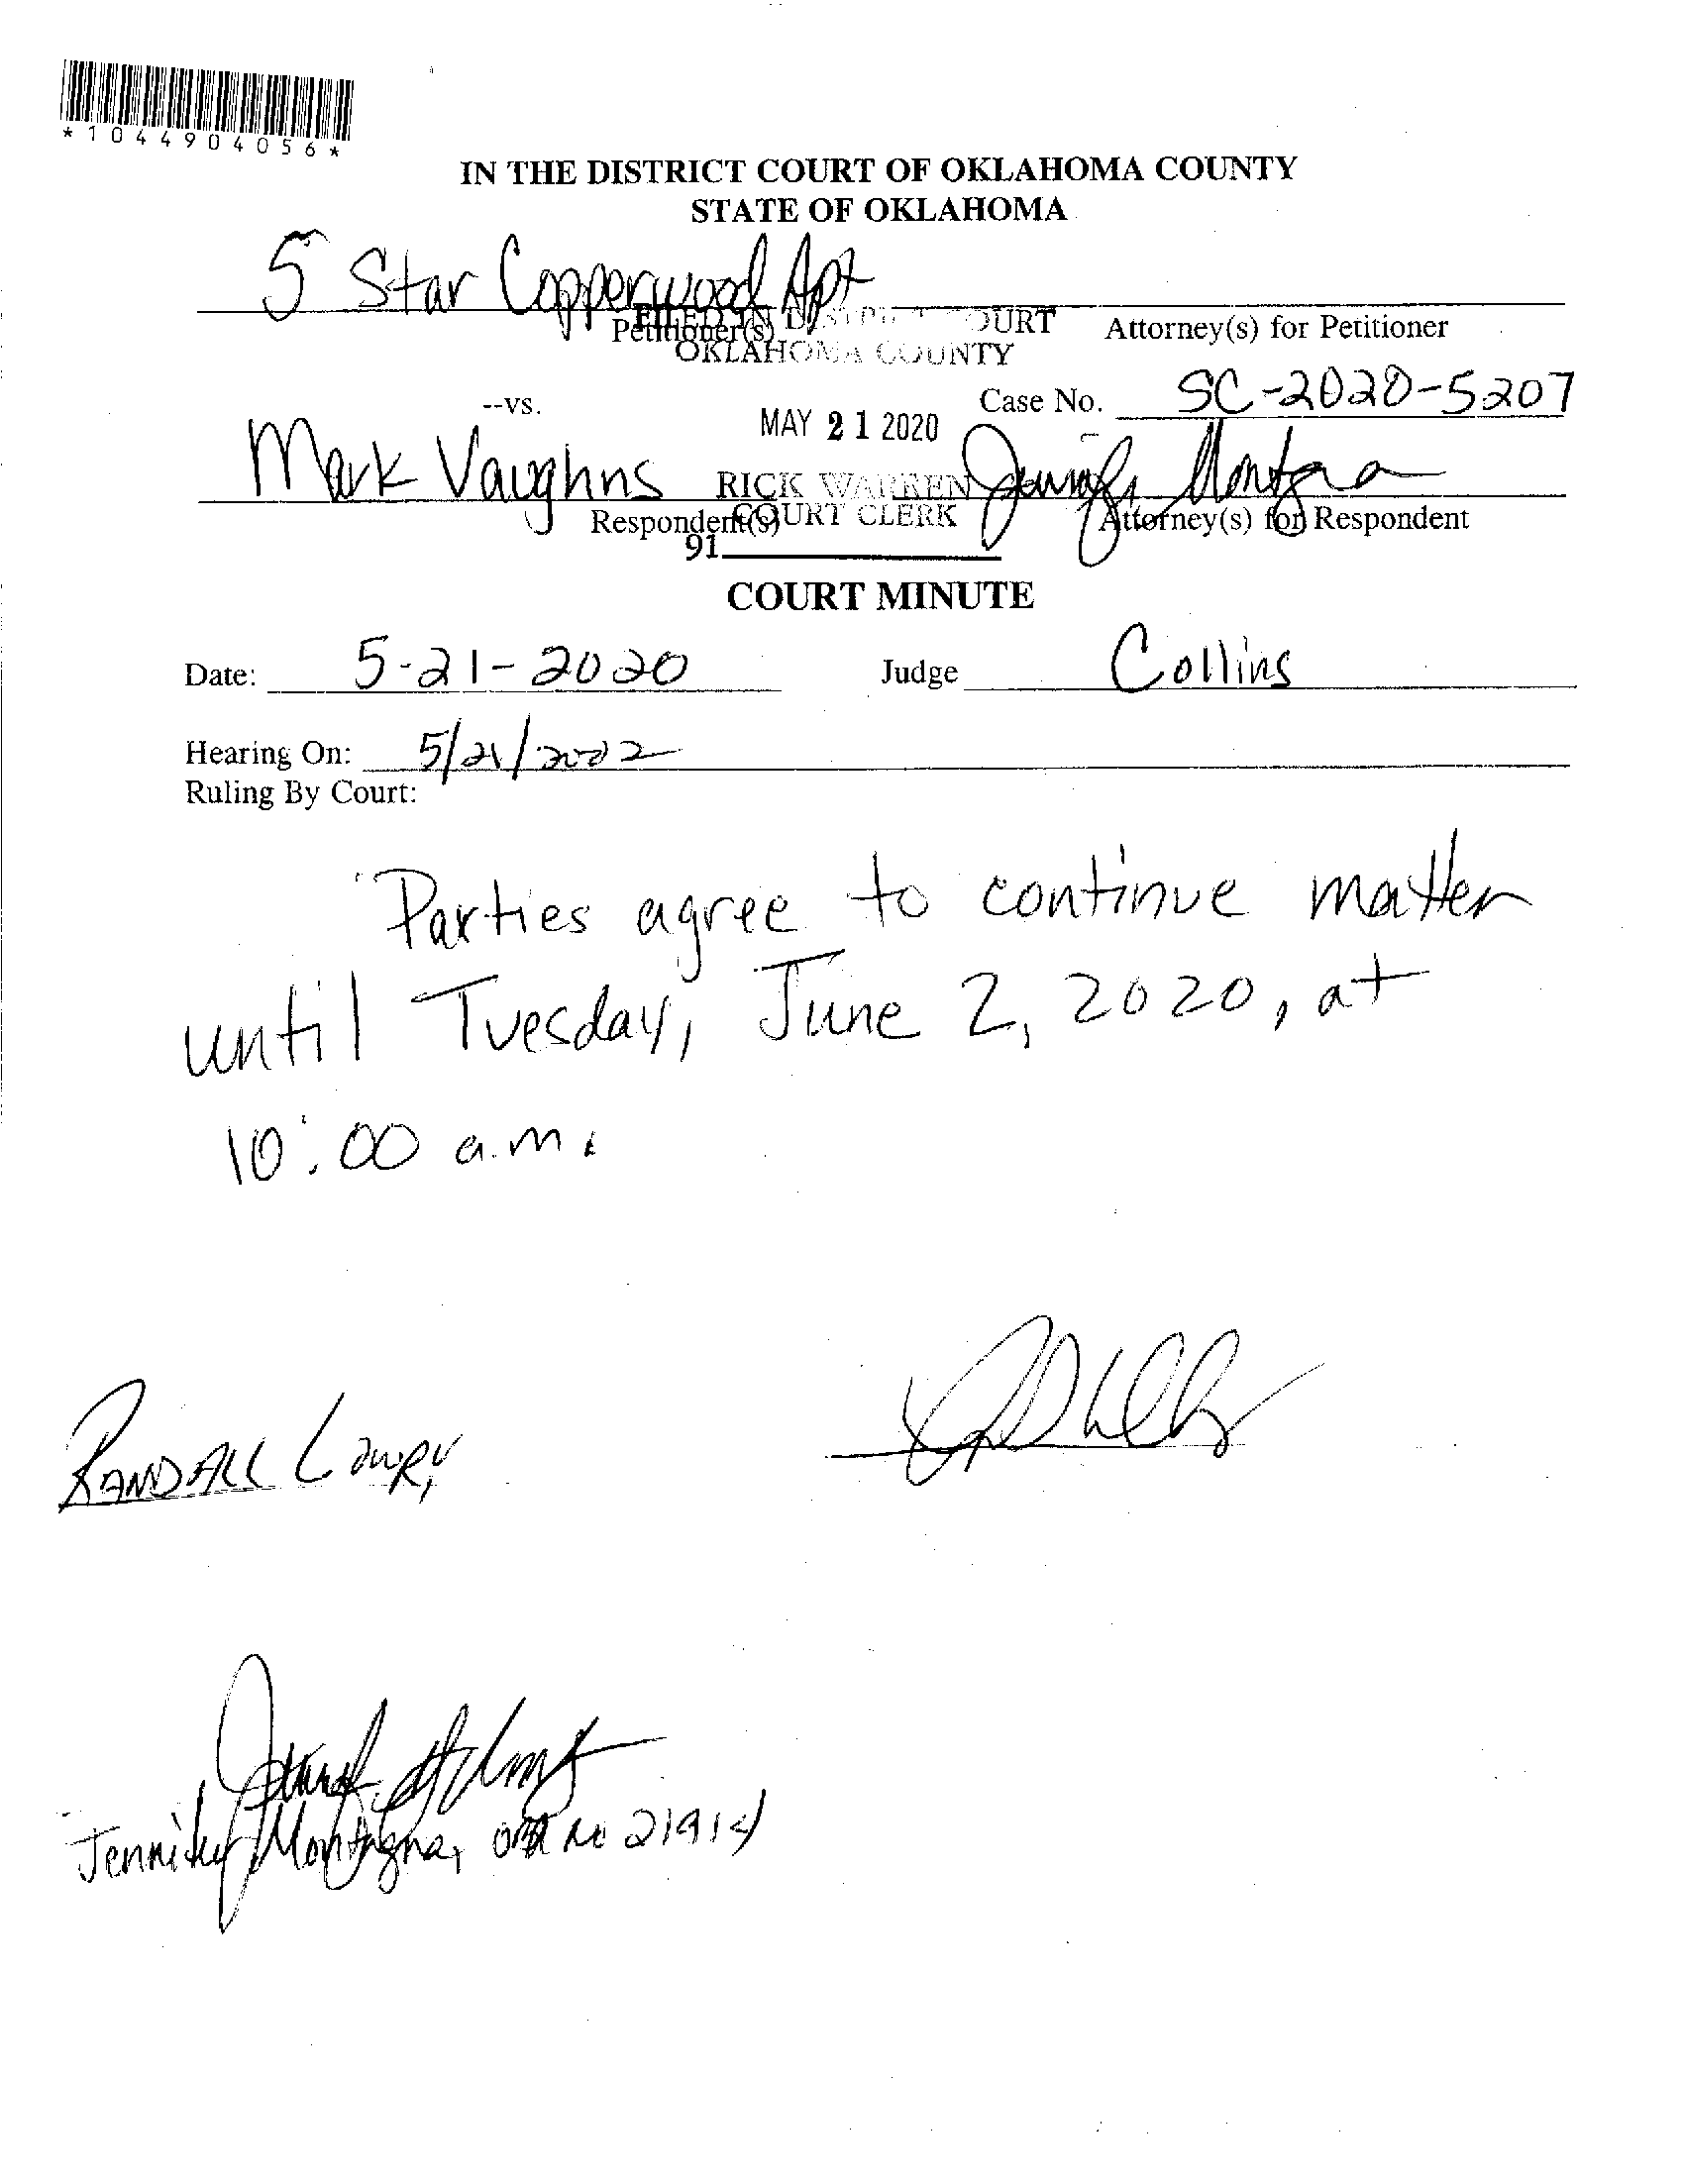 *1044904056*
IN THE DISTRICT COURT OF OKLAHOMA COUNTY
STATE OF OKLAHOMA
5 Star Copperwood Apt
Petitioner(s)
Attorney(s) for Petitioner
FILED IN DISTRICT COURT
OKLAHOMA COUNTY
--vs.
Case No. SC-2020-5207
MAY 21 2020
Mark Vaughns
RICK WARREN
COURT CLERK
Respondent(s)
Attorney(s) for Respondent
91
COURT MINUTE
Date: 5-21-2020 Judge Collins
Hearing On: 5/21/2022
Ruling By Court:
Parties agree to continue matter
until Tuesday, June 2, 2020, at
10:00 a.m.
RANDALL LOWRY
Jennifer Montagna, OBA No 21914